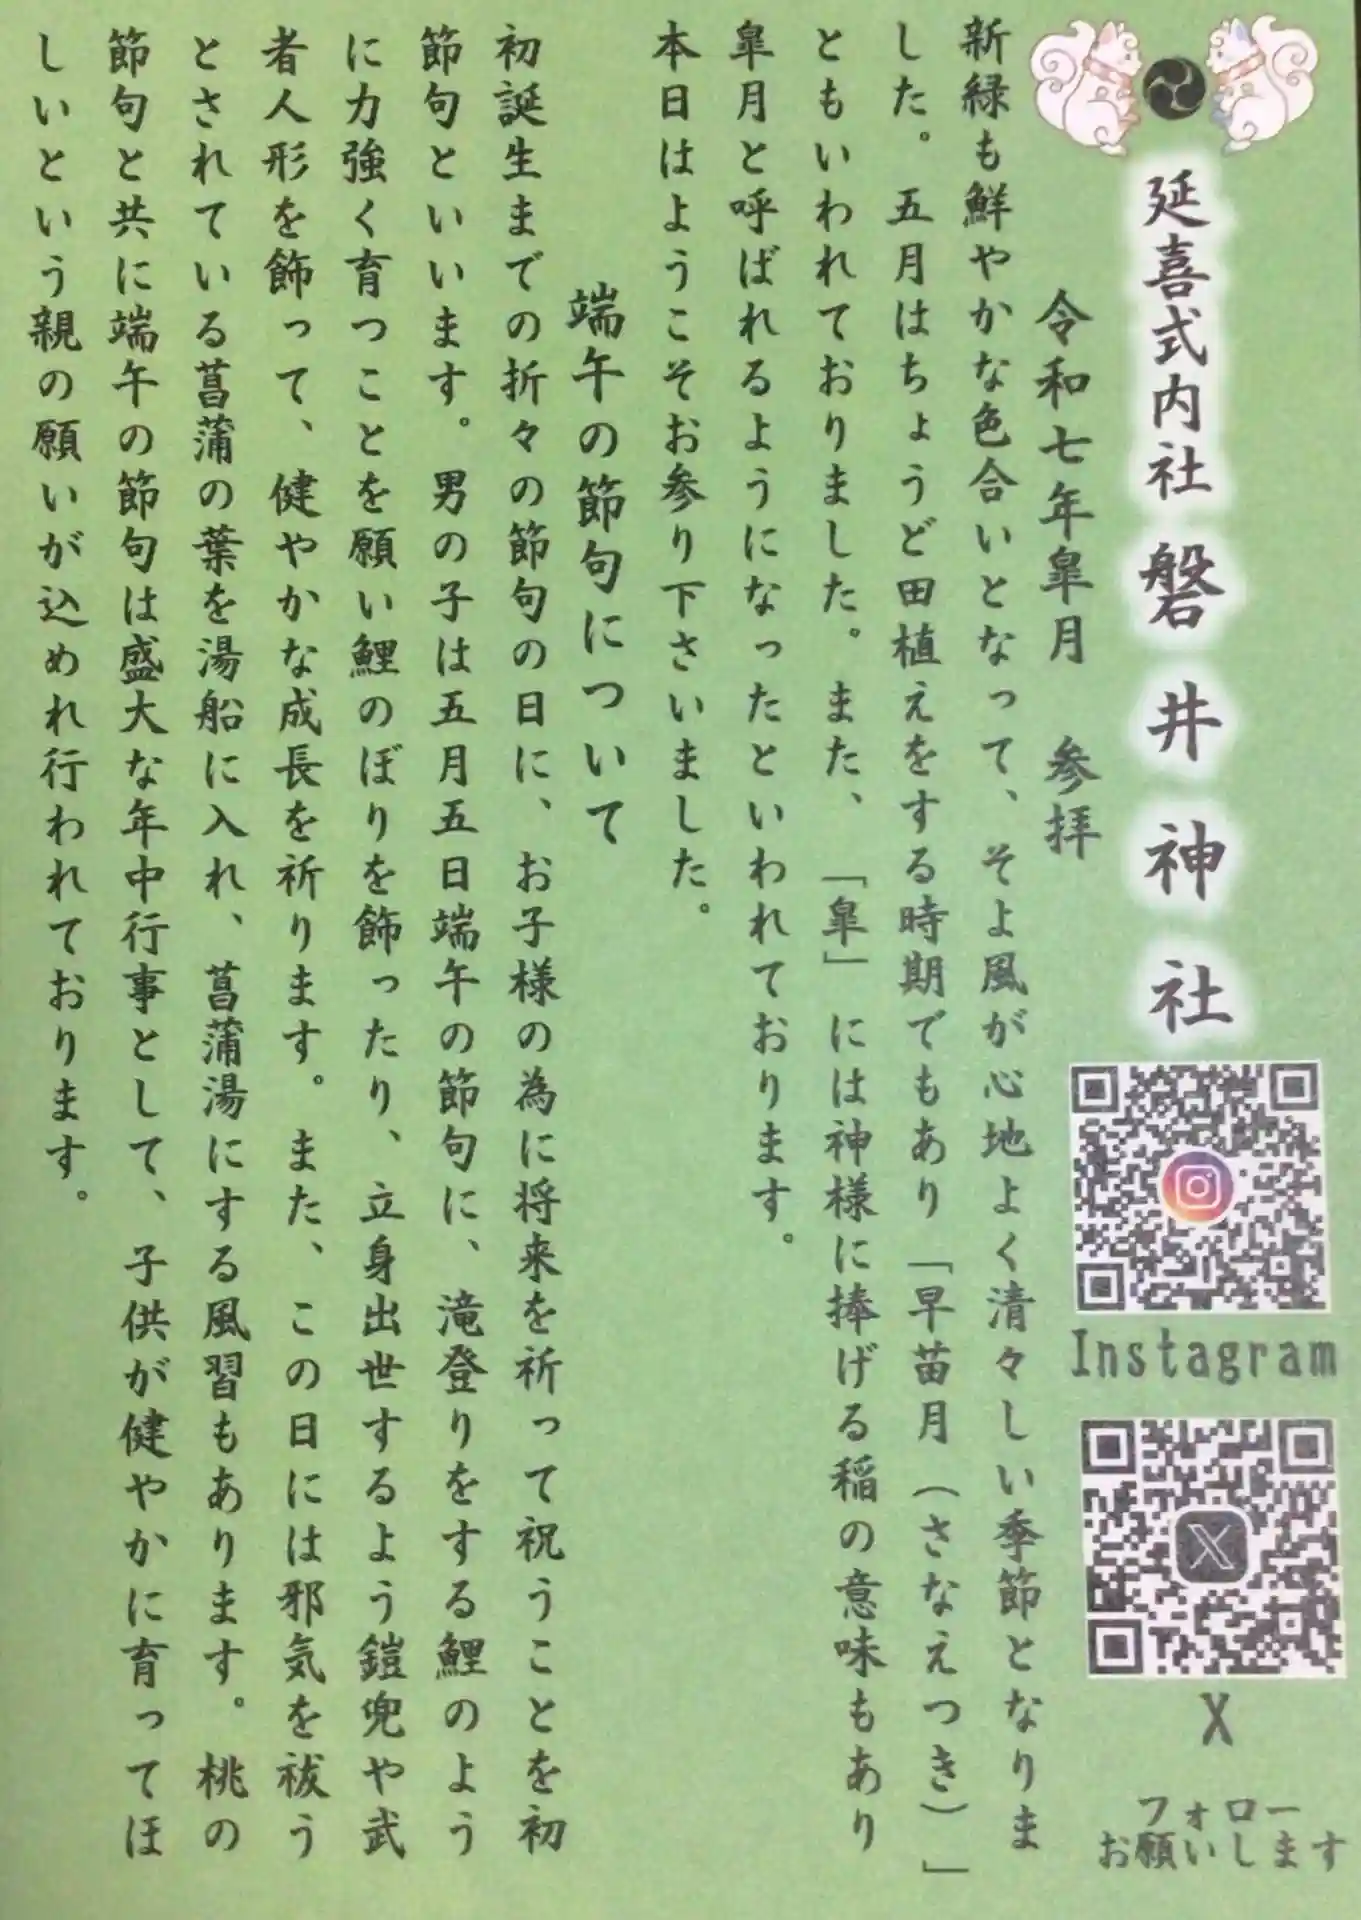 延喜式内社 磐井神社
令和七年皐月 参拝
新緑も鮮やかな色合いとなって、そよ風が心地よく清々しい季節となりま
した。五月はちょうど田植えをする時期でもあり「早苗月（さなえつき）」
ともいわれておりました。また、「皐」には神様に捧げる稲の意味もあり
皐月と呼ばれるようになったといわれております。
本日はようこそお参り下さいました。
端午の節句について
初誕生までの折々の節句の日に、お子様の為に将来を祈って祝うことを初
節句といいます。男の子は五月五日端午の節句に、滝登りをする鯉のよう
に力強く育つことを願い鯉のぼりを飾ったり、立身出世するよう鎧兜や武
者人形を飾って、健やかな成長を祈ります。また、この日には邪気を祓う
とされている菖蒲の葉を湯船に入れ、菖蒲湯にする風習もあります。桃の
節句と共に端午の節句は盛大な年中行事として、子供が健やかに育ってほ
しいという親の願いが込めれ行われております。
Instagram
X
フォロー
お願いします